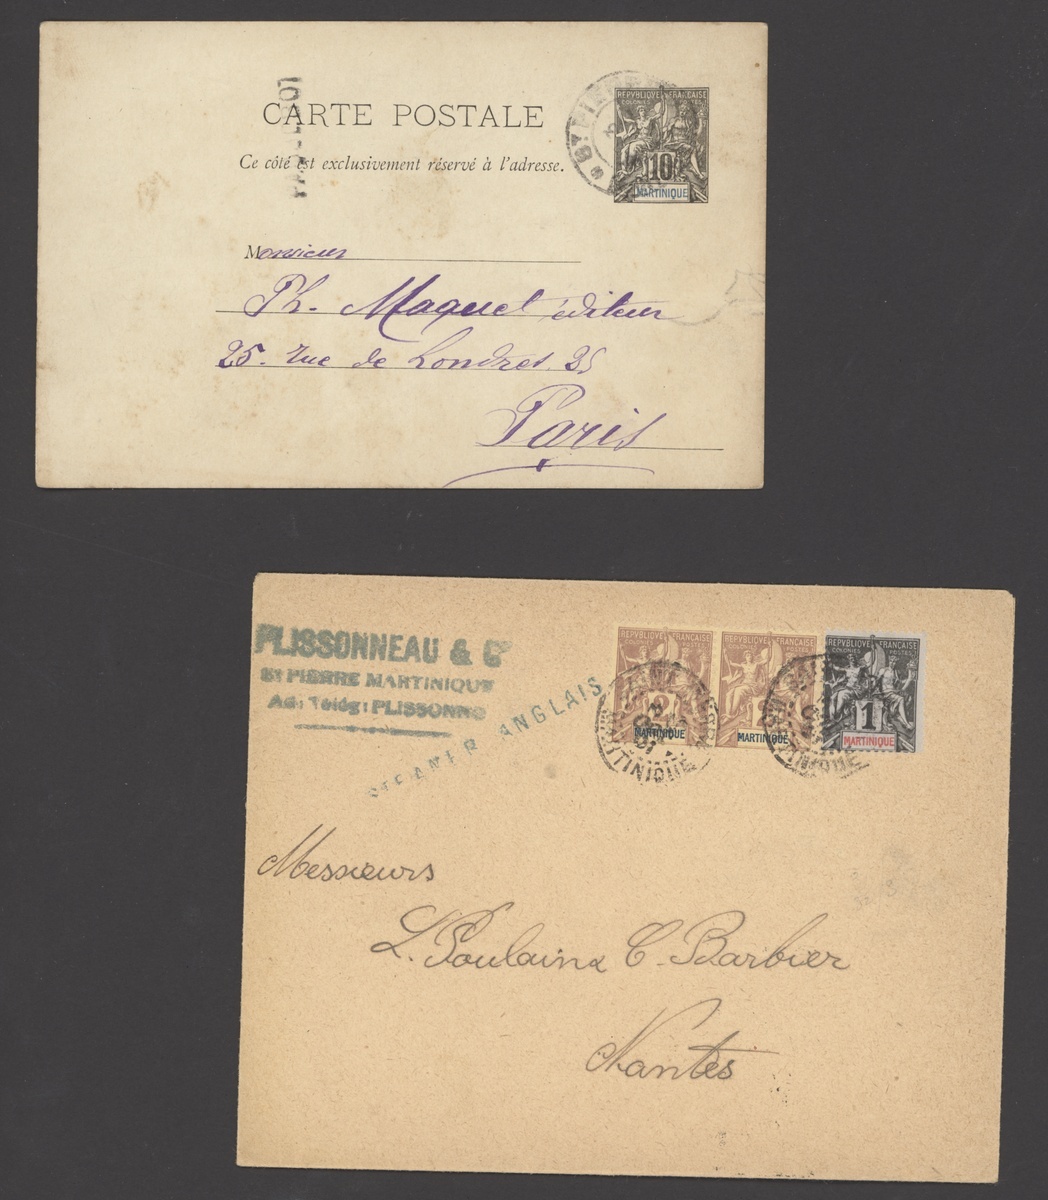 CARTE POSTALE
Ce côté est exclusivement réservé à l'adresse.
REPVBLIQVE FRANÇAISE
COLONIES POSTES
10
MARTINIQUE
Monsieur
Ph. Maquet éditeur
25. rue de Londres. 25
Paris
PLISSONNEAU & Cie
St PIERRE MARTINIQUE
Ad: Télég: PLISSONNO
STEAMER ANGLAIS
REPVBLIQVE FRANÇAISE
COLONIES POSTES
2
MARTINIQUE
REPVBLIQVE FRANÇAISE
COLONIES POSTES
MARTINIQUE
REPVBLIQVE FRANÇAISE
COLONIES POSTES
1
MARTINIQUE
MARTINIQUE
Messieurs
L. Poulain & C. Barbier
Nantes